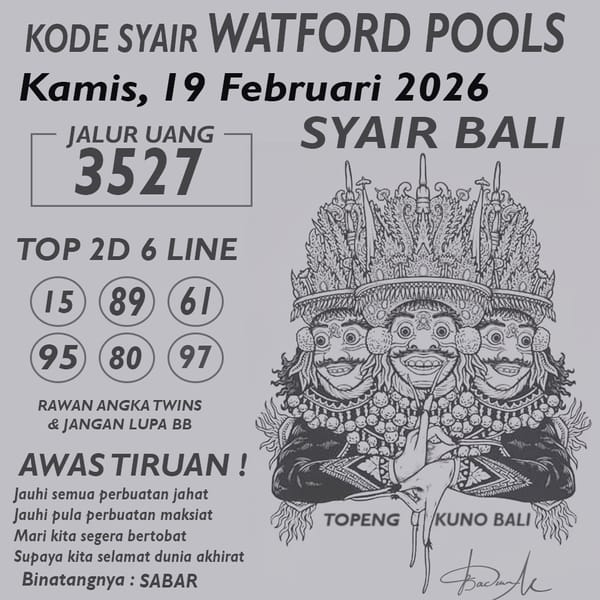 KODE SYAIR WATFORD POOLS
Kamis, 19 Februari 2026
JALUR UANG
3527
SYAIR BALI
TOP 2D 6 LINE
15 89 61
95 80 97
RAWAN ANGKA TWINS
& JANGAN LUPA BB
AWAS TIRUAN !
Jauhi semua perbuatan jahat
Jauhi pula perbuatan maksiat
Mari kita segera bertobat
Supaya kita selamat dunia akhirat
Binatangnya : SABAR
TOPENG KUNO BALI